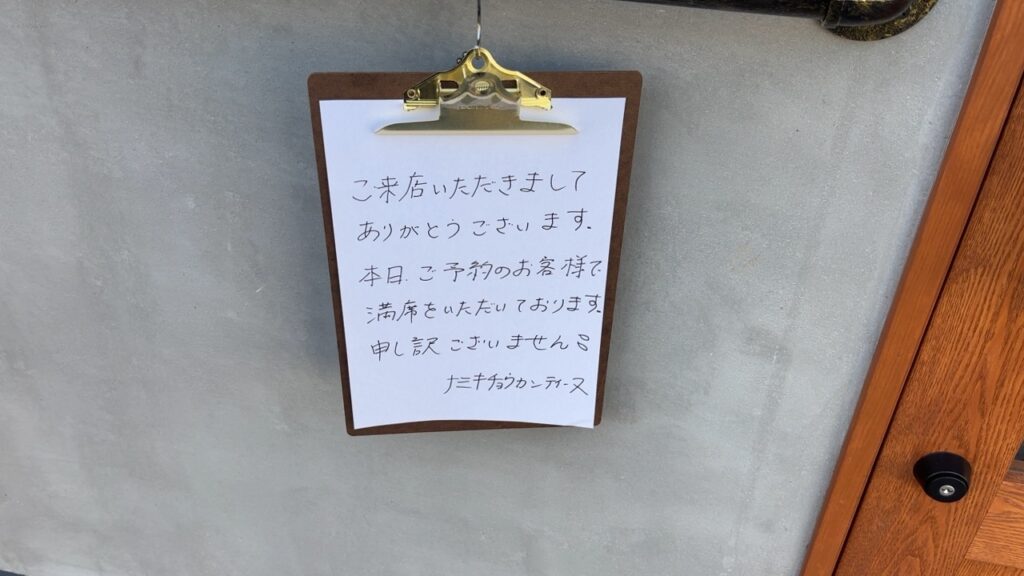 ご来店いただきまして
ありがとうございます.
本日、ご予約のお客様で
満席をいただいております.
申し訳ございません
ナミキチョウカンティーヌ